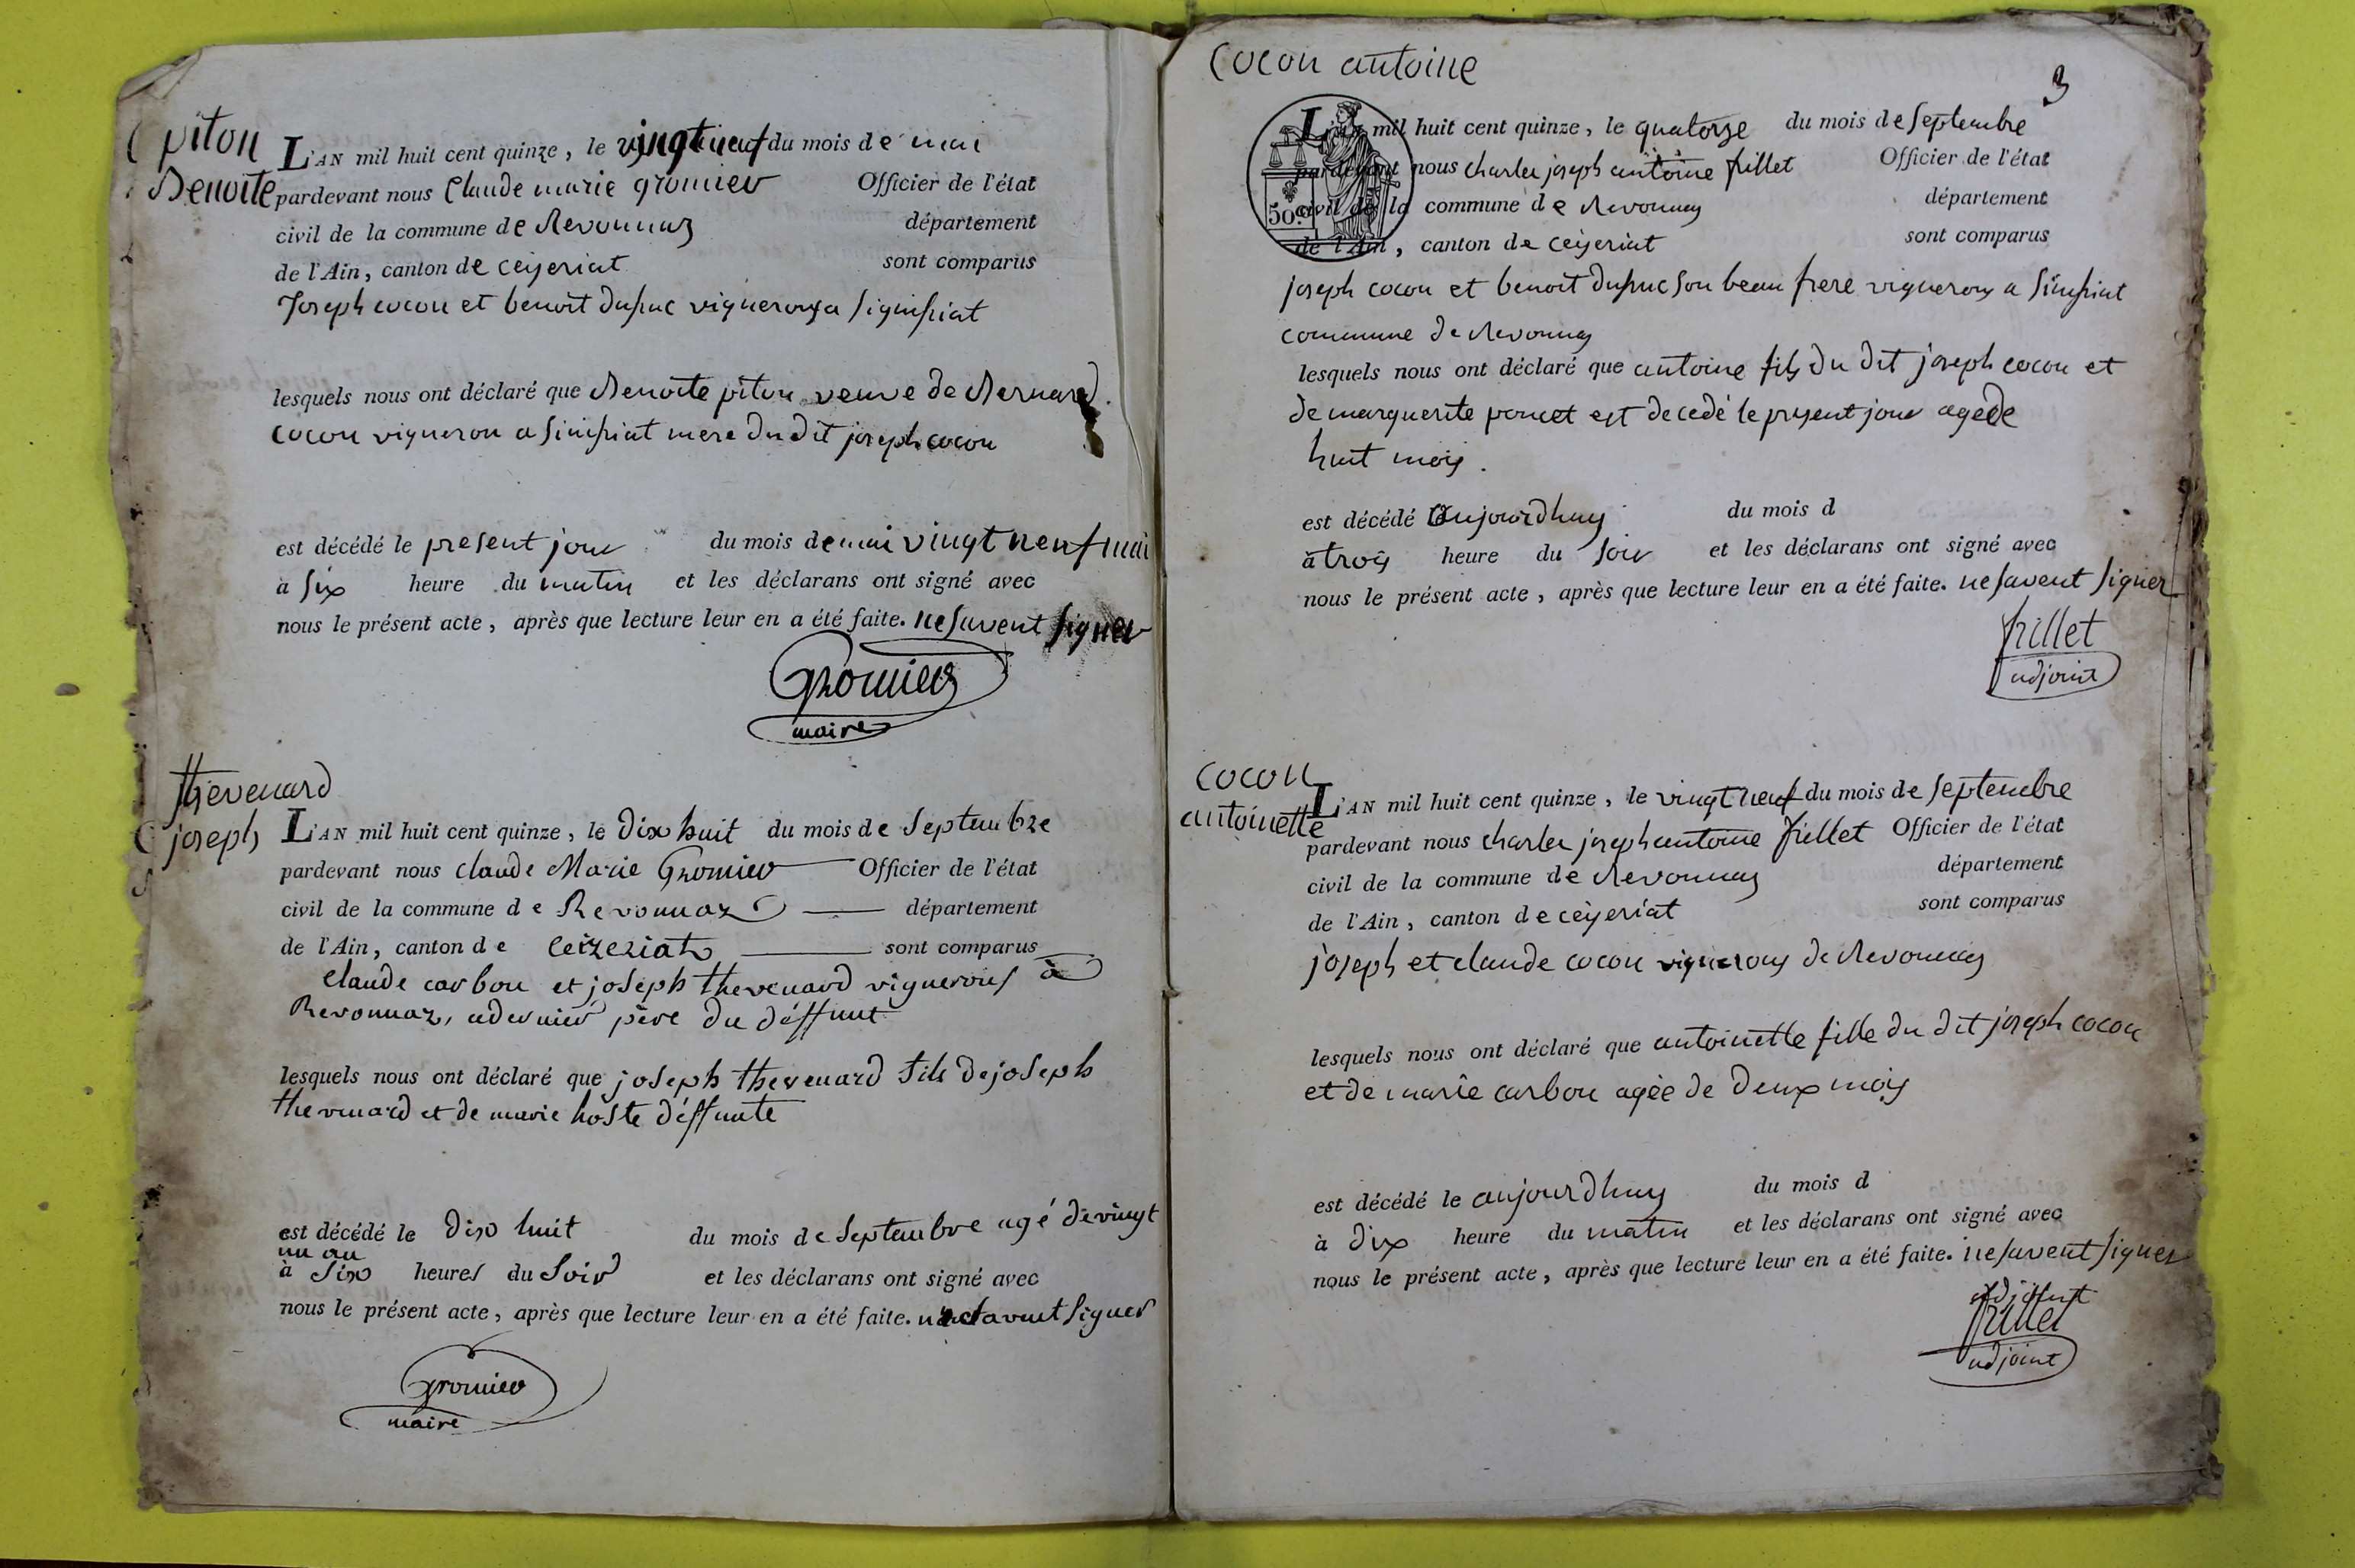 piton
Benoite
L'AN mil huit cent quinze, le vingt neuf du mois de mai
pardevant nous Claude marie gromier Officier de l'état
civil de la commune de Revonnas département
de l'Ain, canton de ceijeriat sont comparus
Joseph cocon et benoit dupuc vignerons a signifiat
lesquels nous ont déclaré que Benoite piton veuve de Bernard
cocon vigneron a simfiat mere du dit joseph cocon
est décédé le present jour du mois de mai vingt neuf mai
à six heure du matin et les déclarans ont signé avec
nous le présent acte, après que lecture leur en a été faite. ne savent signer
Gromier
maire
thevenard
joseph
L'AN mil huit cent quinze, le dix huit du mois de Septembre
pardevant nous claude Marie Gromier Officier de l'état
civil de la commune de Revonnaz département
de l'Ain, canton de Ceizeriat sont comparus
Claude carbon et joseph thevenard vignerons à
Revonnaz, père du déffunt
lesquels nous ont déclaré que joseph thevenard fils de joseph
thevenard et de marie hoste déffunte
est décédé le dix huit du mois de Septembre agé de vingt
un an
à Six heures du Soir et les déclarans ont signé avec
nous le présent acte, après que lecture leur en a été faite. savent signer
gromier
maire
Cocon antoine
3
50.c
L'AN mil huit cent quinze, le quatorze du mois de septembre
pardevant nous charles joseph antoine frillet Officier de l'état
civil de la commune de Revonnas département
de l'Ain, canton de ceijeriat sont comparus
joseph cocon et benoit dupuc son beau frere vignerons a simfiat
commune de Revonnas
lesquels nous ont déclaré que antoine fils du dit joseph cocon et
de marguerite poncet est decedé le present jour agé de
huit mois.
est décédé aujourdhuy du mois d
à trois heure du soir et les déclarans ont signé avec
nous le présent acte, après que lecture leur en a été faite. ne savent signer
frillet
adjoint
Cocon
antoinette
L'AN mil huit cent quinze, le vingt neuf du mois de septembre
pardevant nous charles joseph antoine frillet Officier de l'état
civil de la commune de Revonnas département
de l'Ain, canton de ceijeriat sont comparus
joseph et claude cocon vignerons de Revonnas
lesquels nous ont déclaré que antoinette fille du dit joseph cocon
et de marie carbon agée de deux mois
est décédé le aujourdhuy du mois d
à dix heure du matin et les déclarans ont signé avec
nous le présent acte, après que lecture leur en a été faite. ne savent signer
adjoint
frillet
adjoint